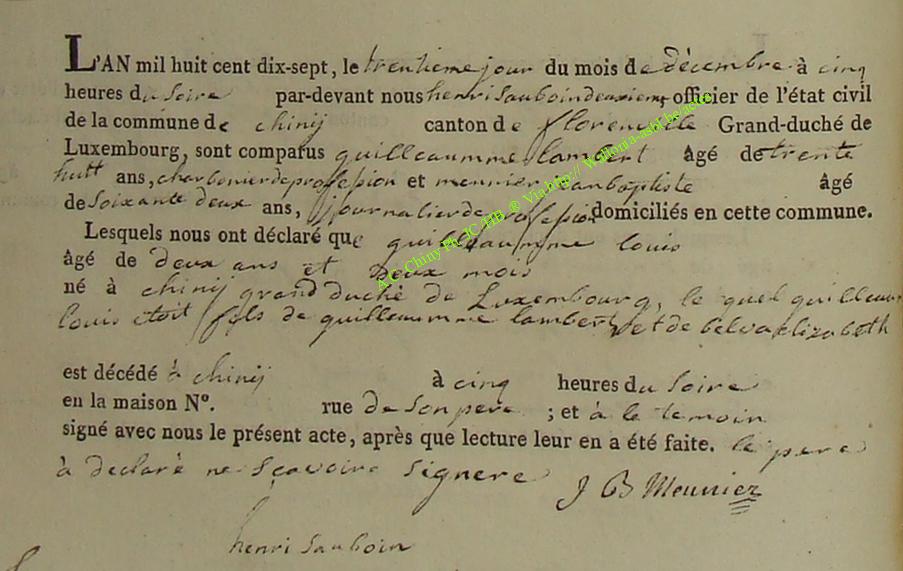 L'AN mil huit cent dix-sept, le trentieme jour du mois de décembre à cinq
heures du soire par-devant nous henri sauboin deuxieme officier de l'état civil
de la commune de chinij canton de florenville Grand-duché de
Luxembourg, sont comparus guilleaumme lambert âgé de trente
huit ans, charbonier de profession et meunier jean baptiste âgé
de soixante deux ans, journalier de profession domiciliés en cette commune.
Lesquels nous ont déclaré que guilleaumme louis
âgé de deux ans et deux mois
né à chinij grand duché de Luxembourg, le quel guilleaum
louis etoit fils de guilleaumme lambert et de belva elizabeth
est décédé à chinij à cinq heures du soire
en la maison N°. rue de son pere ; et à le temoin
signé avec nous le présent acte, après que lecture leur en a été faite. le pere
à declaré ne sçavoire signere
J B Meunier
henri sauboin
A.C. Chiny Ph. JC/HB ® Via http:// Wallonia-asbl.be/acte/